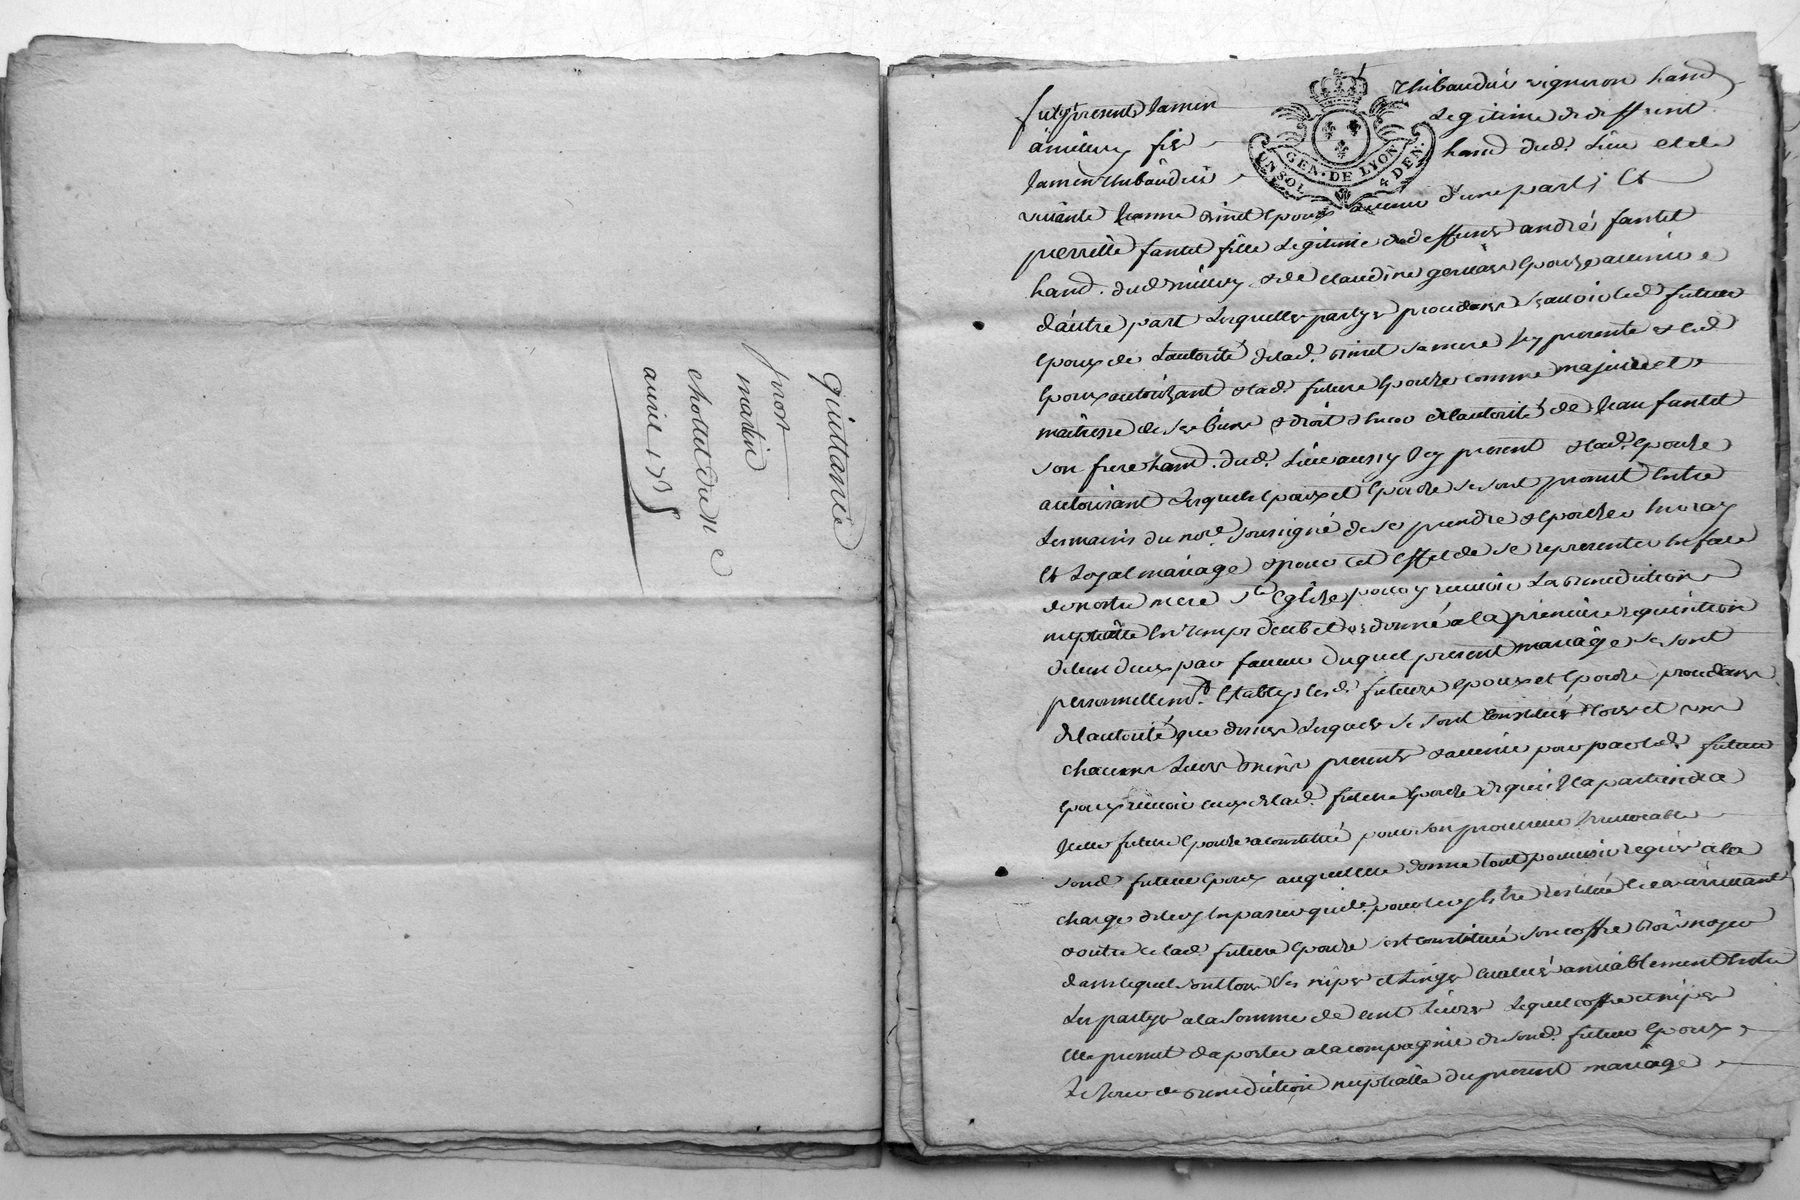 Quittance
pour
martin
chollet du
avril 175
GEN. DE LYON
UN SOL 4 DEN.
fut present lamen Thibaudié vigneron hand
à millery fils Legitime de deffunt
lamen thibaudié hand. dud. Lieu et de
vivante binet epoux avenir d'une part, Et
pierrette fantet fille Legitime dud deffunt andré fantet
hand. dud millery & de claudine epouze avenir
d'autre part Lesquelles partyes procedans sçavoir led futur
epoux de L'autorité delad. binet sa mere Icy presente & led
epoux autorisant & lad. future epouze comme majeure et
maitresse de ses biens & droit & de l'autorité de Jean fantet
son frere hand. dud. Lieu aussy Icy present & lad. epouze
autorisant Lesquels epoux et epouze se sont promit Entre
Les mains du no.re soussigné de se prendre & epouzer En vray
Et Loyal mariage & pour cet Effet de se representer En face
de nostre mere S.te Eglize pour y recevoir La benediction
nuptialle En temps deub et ordonné a la premiere requisition
de l'un d'eux par faveur duquel present mariage se sont
personnellem.t Etablys les d. futurs epoux et epouze procedans
de l'autorité que dessus Lesquels se sont constitués tous et uns
chacuns Leurs biens presents & avenir pour par led. futur
epoux recevoir ceux de lad. future epouze & qui Il apartiendra
Icelle future epouze a constitué pour son procureur Irrevocable
sond. futur epoux auquel elle donne tout pouvoir requis a la
charge de les y Imposer qu'elle pour les y Estre restitué le cas arrivant
& outre ce lad. future epouze s'est constitué son coffre bois noyer
dans lequel sont tous ses nipes et Linges Evalués amiablement Entre
Les partyes a la somme de cent Livres Lequel coffre et nipes
Elle promet d'aporter a la compagnie de sond. futur epoux
Le jour de benediction nuptialle du present mariage